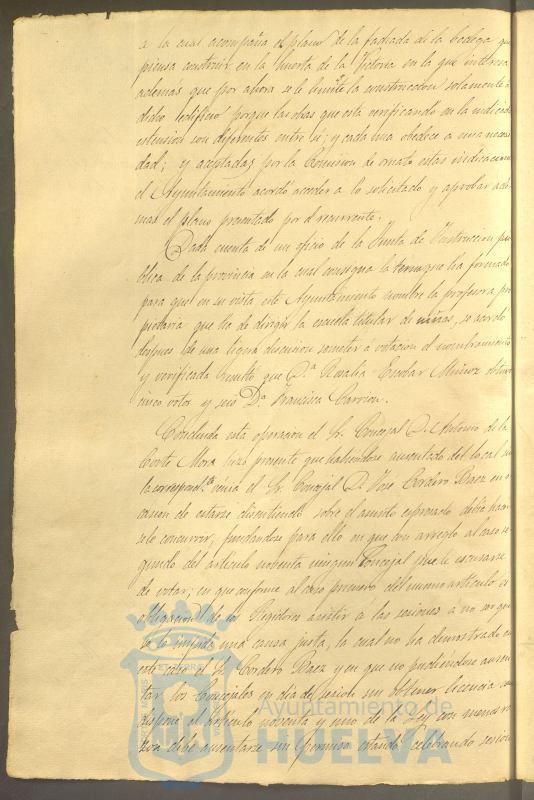 a la cual acompaña el plano de la fachada de la bodega que
piensa construir en la huerta de la Victoria en la que interesa
ademas que por ahora se le limite la construccion solamente a
dicho edificio porque las obras que esta verificando en la indicada
estension son diferentes entre si; y cada una obedece a una necesi
dad; y aceptadas por la Comision de ornato estas indicaciones
el Ayuntamiento acordó acceder a lo solicitado y aprobar ade
mas el plano presentado por el recurrente.
Dada cuenta de un oficio de la Junta de Instruccion pú
blica de la provincia en la cual consigna la terna que ha formado
para que en su vista este Ayuntamiento nombre la profesora pro
pietaria que ha de dirigir la escuela titular de niñas, se acordó
despues de una ligera discusion someter á votacion el nombramiento
y verificada resultó que Dª Amalia Escobar Muñoz obtuvo
cinco votos y seis Dª Francisca Carrion.
Concluida esta operacion el Sr. Concejal D. Antonio de la
Corte Mora hizo presente que habiendose ausentado del local sin
la correspondte venia el Sr. Concejal D. Jose Cordero Baez en o
casion de estarse discutiendo sobre el asunto espresado debia hacer
sele concurrir, fundandose para ello en que con arreglo al caso se
gundo del articulo noventa ningun Concejal puede escusarse
de votar; en que conforme al caso primero del mismo articulo es
obligacion de los Regidores asistir á las sesiones a no ser que
lo impida una causa justa, la cual no ha demostrado en
este caso el Sr. Cordero Baez y en que no pudiendose ausen
tar los Concejales en dia de sesion sin obtener licencia se
dispone el articulo noventa y uno de la Ley con menos ra
zon debe ausentarse sin permiso estando celebrando sesion
Ayuntamiento de
HUELVA